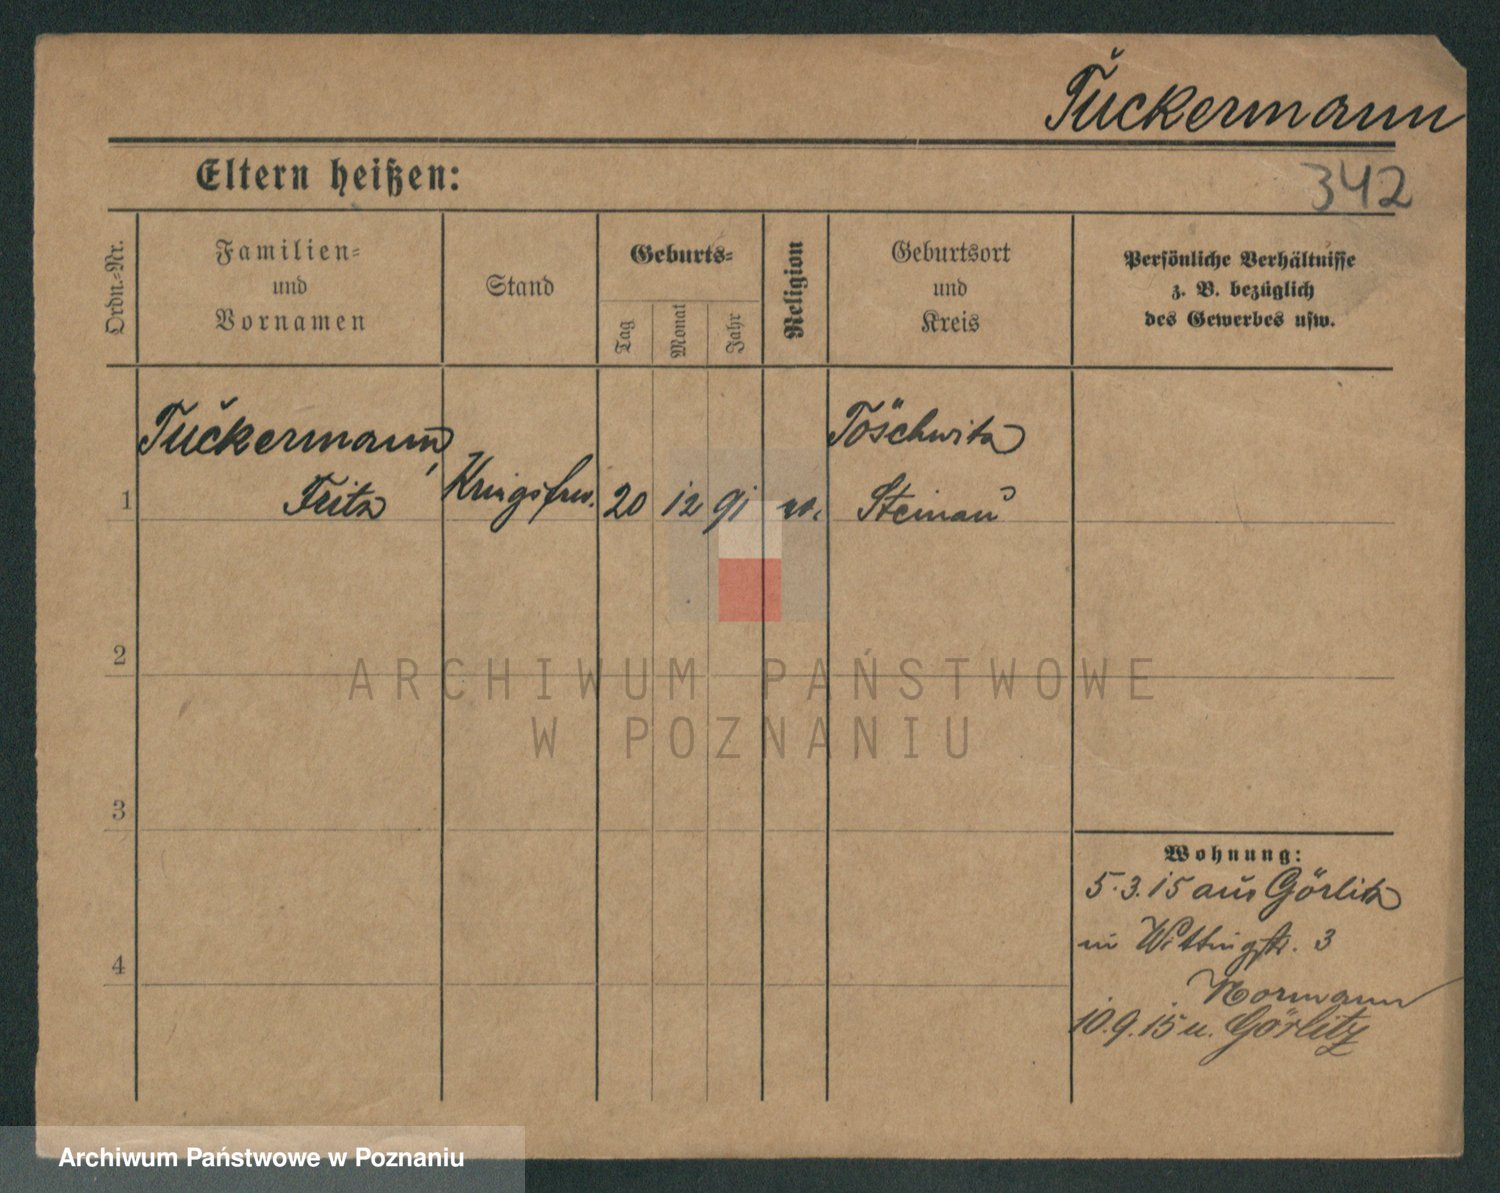 Tuckermann
Eltern heißen:
342
Ordn.-Nr.
Familien-
und
Vornamen
Stand
Geburts-
Tag
Monat
Jahr
Religion
Geburtsort
und
Kreis
Persönliche Verhältnisse
z. B. bezüglich
des Gewerbes usw.
Tuckermann,
Töschwitz
1 Fritz
20 12 91
Steinau
2
3
4
ARCHIWUM PAŃSTWOWE
W POZNANIU
Wohnung:
5.3.15 aus Görlitz
in Wittingstr. 3
Normann
10.9.15 n. Görlitz
Archiwum Państwowe w Poznaniu